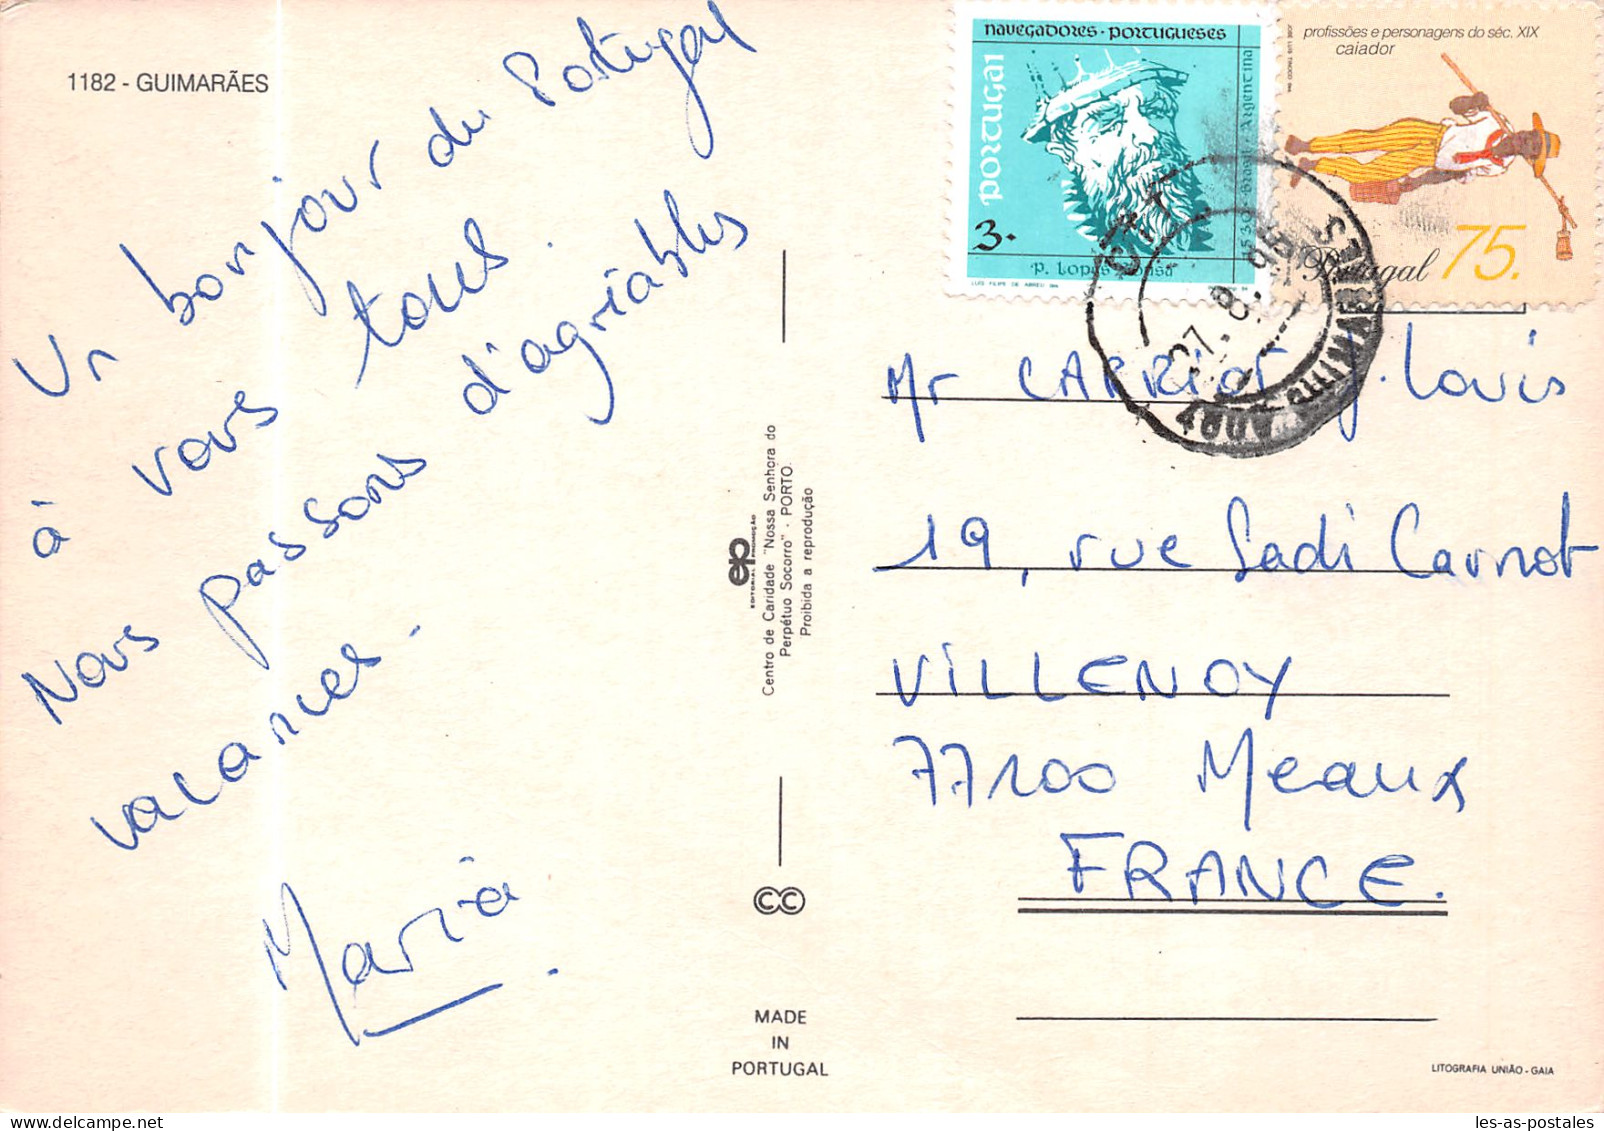 1182 - GUIMARÃES
Un bonjour du Portugal
à vous tous.
Nous passons d'agriables
vacances.
Maria
Centro de Caridade "Nossa Senhora do
Perpétuo Socorro" - PORTO
Proibida a reprodução
ep
EDITORIAL PROMOÇÃO
CC
MADE
IN
PORTUGAL
navegadores · portugueses
portugal
3.
P. Lopes Sousa
LUIS FILIPE DE ABREU
Argentina
profissões e personagens do séc. XIX
caiador
JOSÉ LUIS TINOCO
Portugal 75.
27. 8.
GUIMARÃES
Mr CARRIOT J. Louis
19, rue Sadi Carnot
VILLENOY
77100 Meaux
FRANCE.
LITOGRAFIA UNIÃO - GAIA
les-as-postales